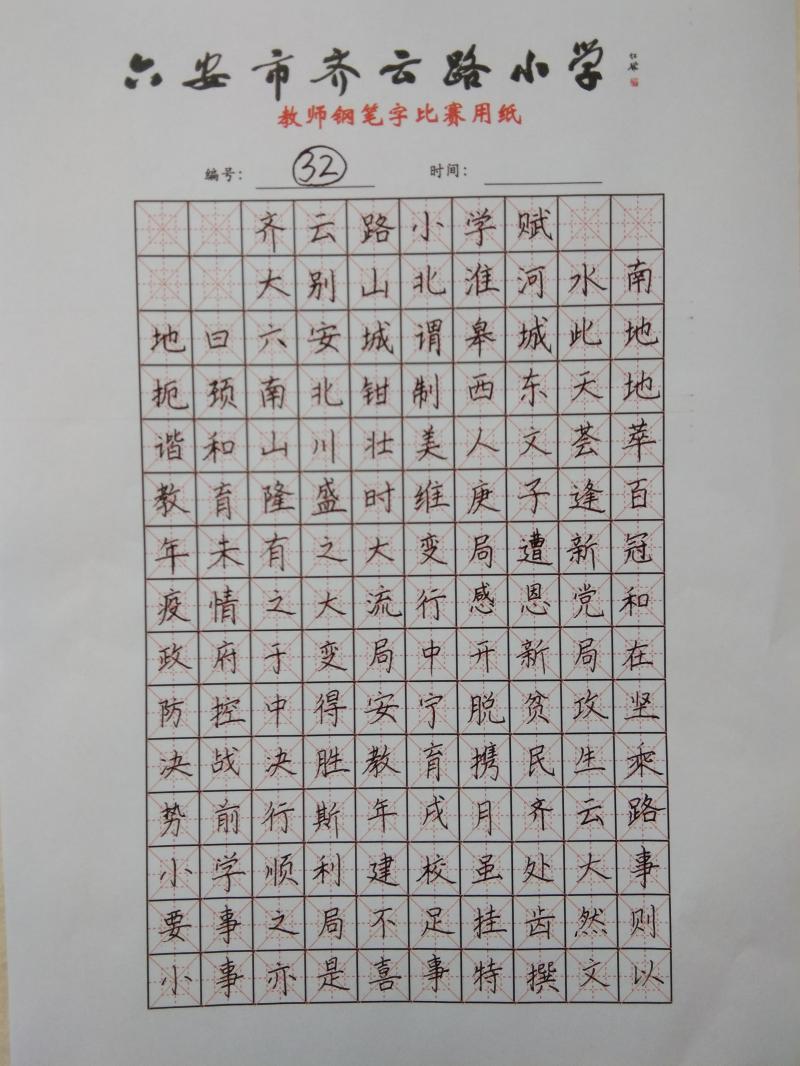 六安市齐云路小学
教师钢笔字比赛用纸
编号： 32 时间：
齐云路小学赋
大别山北淮河水南
地曰六安城谓皋城此地
扼颈南北钳制西东天地
谐和山川壮美人文荟萃
教育隆盛时维庚子逢百
年未有之大变局遭新冠
疫情之大流行感恩党和
政府于变局中开新局在
防控中得安宁脱贫攻坚
决战决胜教育携民生乘
势前行斯年戌月齐云路
小学顺利建校虽处大事
要事之局不足挂齿然则
小事亦是喜事特撰文以